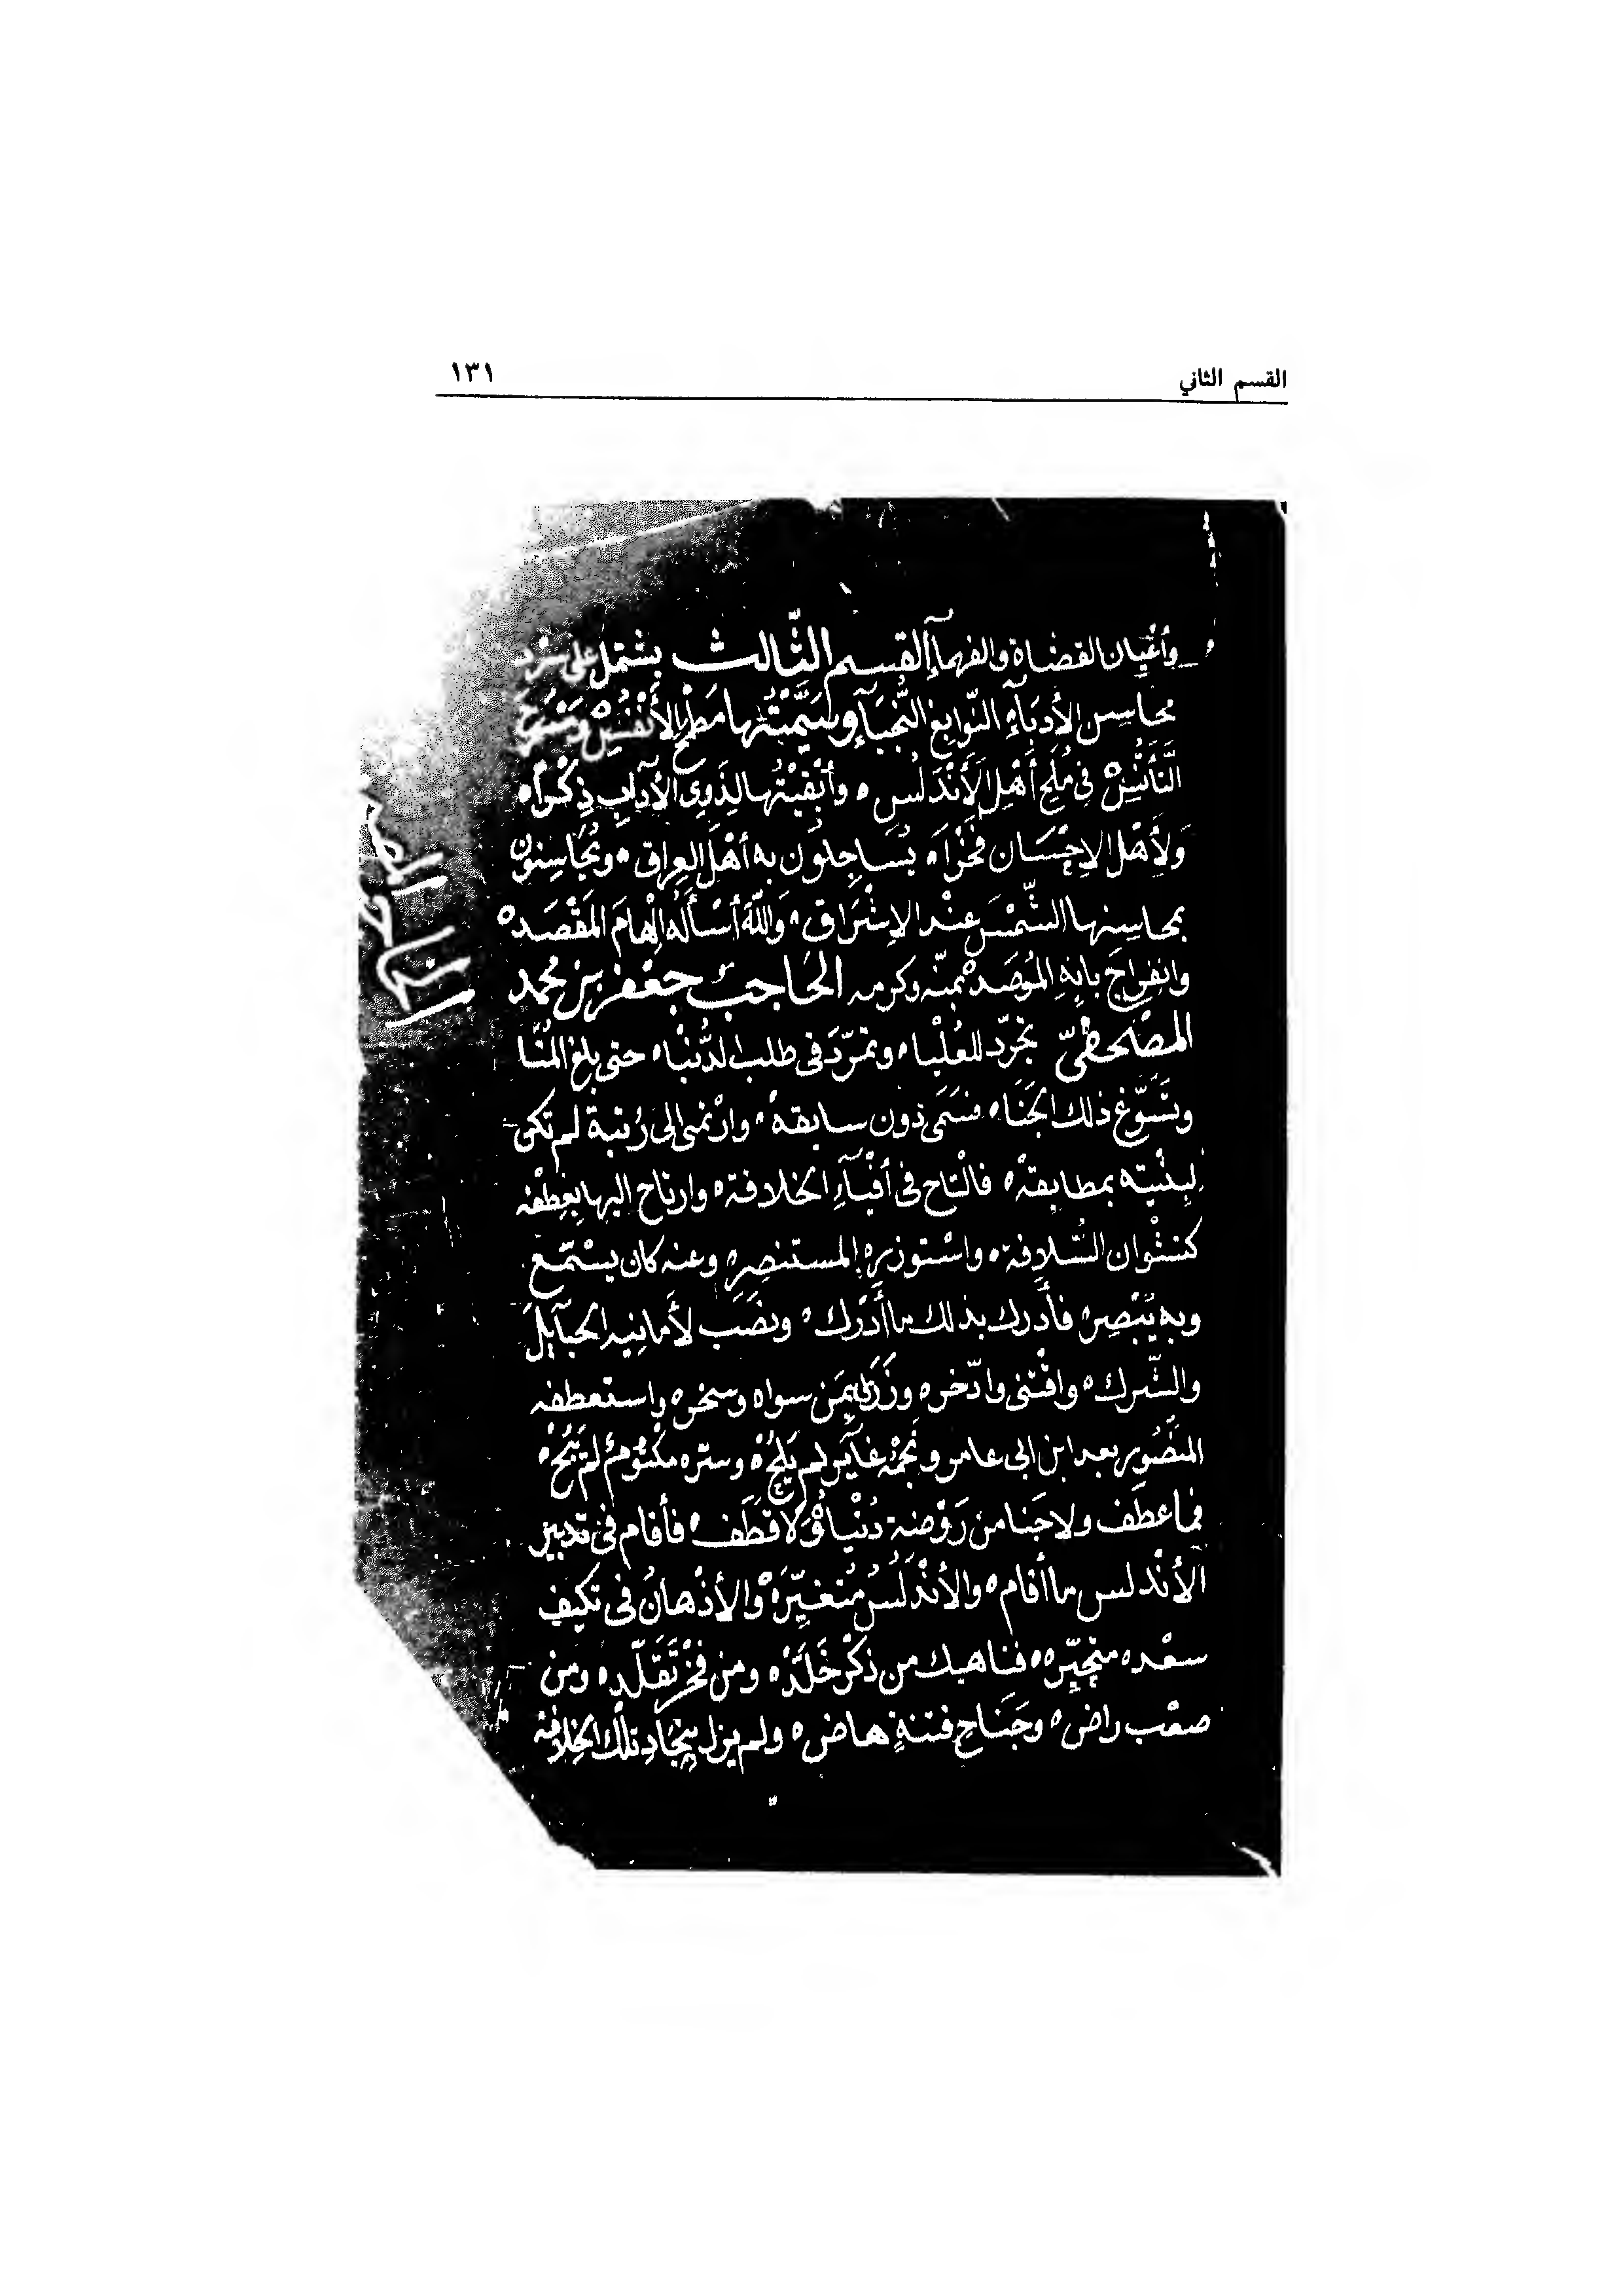 القسم الثاني
١٣١
وأعْيان القضاة والفهمآء القسم الثّالث يشتمل على سرد
محاسن الأدبآءِ النّوابغ النُّجبَآءِ وسَمَّيْتُها مَطمح الأَنْفُسْ ومَسْرَح
التَّأَنُّسْ في مُلَح أَهْل الأَنْدَلُس ه وأَبْقيْتُها لِذَوِي الآدابِ ذِكْراً ه
وَلأَهْل الإحْسَان فَخْراً ه يُسَاجِلُون به أهْل العِراق ه ويُحَاسِنون
بمحاسِنها الشّمْسَ عنْد الإشْرَاق ه وَاللّهَ أسْأَلُه إلْهامَ المَقْصَد ه
وانفِراجَ بابِهِ المُوصَدْ بمنّه وكرمه الحَاجبُ جعْفر بنُ محمد
المصْحفيّ تجرّد للعُلْيا ه وتمرّدَ في طلب الدُّنْيا ه حتى بلغ المُنَا
وتَسَوّغ ذلك الجَنَا ه فسَمَى دون سابقهْ ه وارْتمى إلى رُتبة لم تكن
لِبِنْيته بمطابقهْ ه فالْتاح في أفْيآءِ الخلافة ه وارتاح إليها بعِطْفه
كنشْوان السُّلافة ه واسْتوزره المستنصِره وعنه كان يسْتمع
وبه يُبْصِر ه فأَدرك بذلك ما أَدْرك ه ونصَب لأَمانِيه الحبآيلَ
والشّرك ه واقْتنى وادّخر ه وزَرَى بمَن سواه وسخر ه واستعطفه
المنصُور بعد ابن أبي عامر ونجْمُه غآير لم يَلُحْ ه وسرّه مكْتُومٌ لم يَبُحْ ه
فما عطَف ولا جَنا من رَوْضة دُنْياه ولا قَطَف ه فأقام في تدبير
الأنْدلس ما أقام ه والأنْدَلُسُ مُتغيّرَهْ ه والأذْهانُ في تكيف
سعْده متحيّره ه فناهيك من ذكْر خَلّدْ ه ومن فخْر تَقَلّد ه ومن
صعْب راض ه وجَناحِ فتنةٍ هاض ه ولم يزل بنِجَادِ تلك الخِلافة